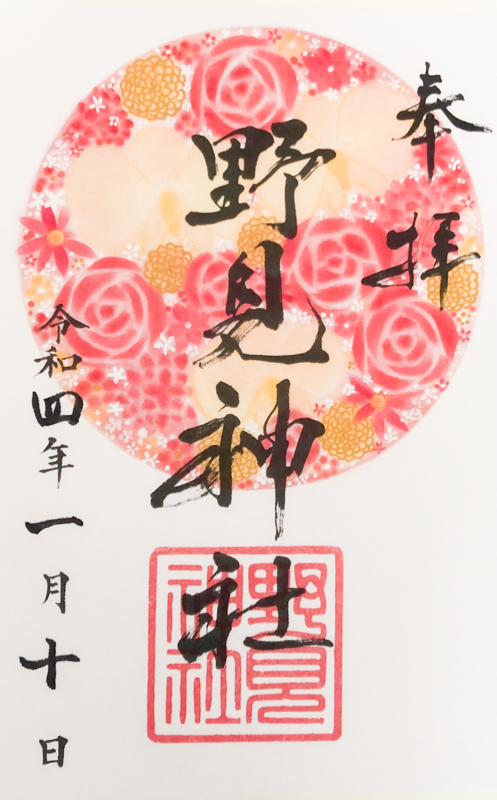 奉拝
野見神社
野見神社
令和四年一月十日